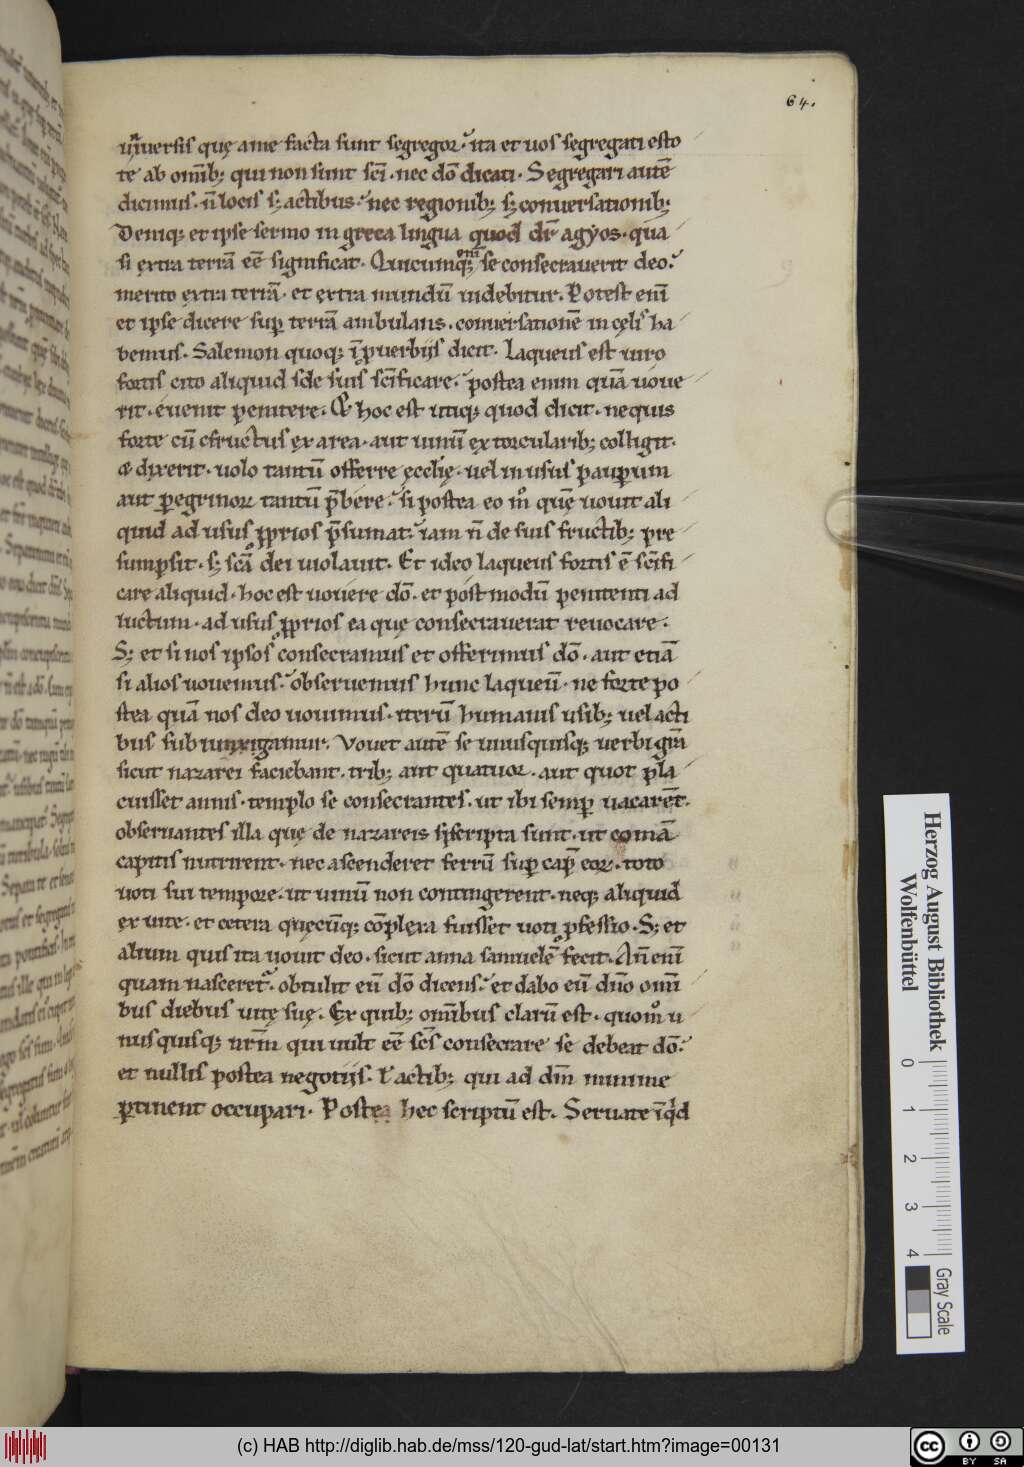 64.
uniuersis quę a me facta sunt segregor. ita et uos segregati esto
te ab om̅ib; qui non sunt sc̅i. nec do̅ dicati. Segregari aute̅
dicimus. n̅ locis s; actibus. nec regionib; s; conuersationib;
Deniq; et ipse sermo in greca lingua quod dr̅ agyos. qua
si extra terra̅ ee̅ significat. Quicumq; se consecrauerit deo.
merito extra terra̅. et extra mundu̅ uidebitur. Potest eni̅
et ipse dicere sup̲ terra̅ ambulans. conuersatione̅ in cęlis ha
bemus. Salemon quoq; i̅ p̲uerbiis dicit. Laqueus est uiro
fortis cito aliquid de suis sc̅ificare. postea enim qua̅ uoue
rit. euenit penitere. & hoc est utiq; quod dicit. nequis
forte cu̅ fructus ex area. aut uinu̅ ex torcularib; colligit.
& dixerit. uolo tantu̅ offerre ęcclię. uel in usus paup̲um
aut p̲egrinor̲ tantu̅ p̅bere. si postea eo mo̅ quę uouit ali
quid ad usus p̲prios p̅sumat. iam n̅ de suis fructib; pre
sumpsit. s; sc̅a dei uiolauit. Et ideo laqueus fortis e̅ sc̅ifi
care aliquid. hoc est uouere do̅. et post modu̅ penitenti ad
luctum. ad usus p̲prios ea quę consecrauerat reuocare.
S; et si nos ipsos consecramus et offerimus do̅. aut etia̅
si alios uouemus. obseruemus hunc laqueu̅. ne forte po
stea qua̅ nos deo uouimus. iteru̅ humanis usib; uel acti
bus subiungamur. Vouet aute̅ se unusquisq; uerbi gr̅a
sicut nazarei faciebant. trib; aut quatuor. aut quot pla
cuisset annis. templo se consecrantes. ut ibi semp̲ uacare̅t.
obseruantes illa quę de nazareis sc̅scripta sunt. ut coma̅
capitis nutrirent. nec ascenderet ferru̅ sup̲ cap̅ eor̲. toto
uoti sui tempore. ut uinu̅ non contingerent. neq; aliquid
ex uite. et cetera quęcu̅q; co̅plexa fuisset uoti p̲fessio. S; et
alium quis ita uouit deo. sicut anna samuele̅ fecit. An̅ eni̅
quam nasceret̉. obtulit eu̅ do̅ dicens. et dabo eu̅ dn̅o omi̅
bus diebus uitę suę. Ex quib; om̅ibus claru̅ est. quom̊ u
nusquisq; nr̅m qui uult ee̅ sc̅s consecrare se debeat do̅.
et nullis postea negotiis. ł actib; qui ad dm̅ minime
p̲tinent occupari. Postea hec scriptu̅ est. Seruate i̅q̅d
Herzog August Bibliothek
Wolfenbüttel
0 1 2 3 4
Gray Scale
(c) HAB http://diglib.hab.de/mss/120-gud-lat/start.htm?image=00131
cc BY SA